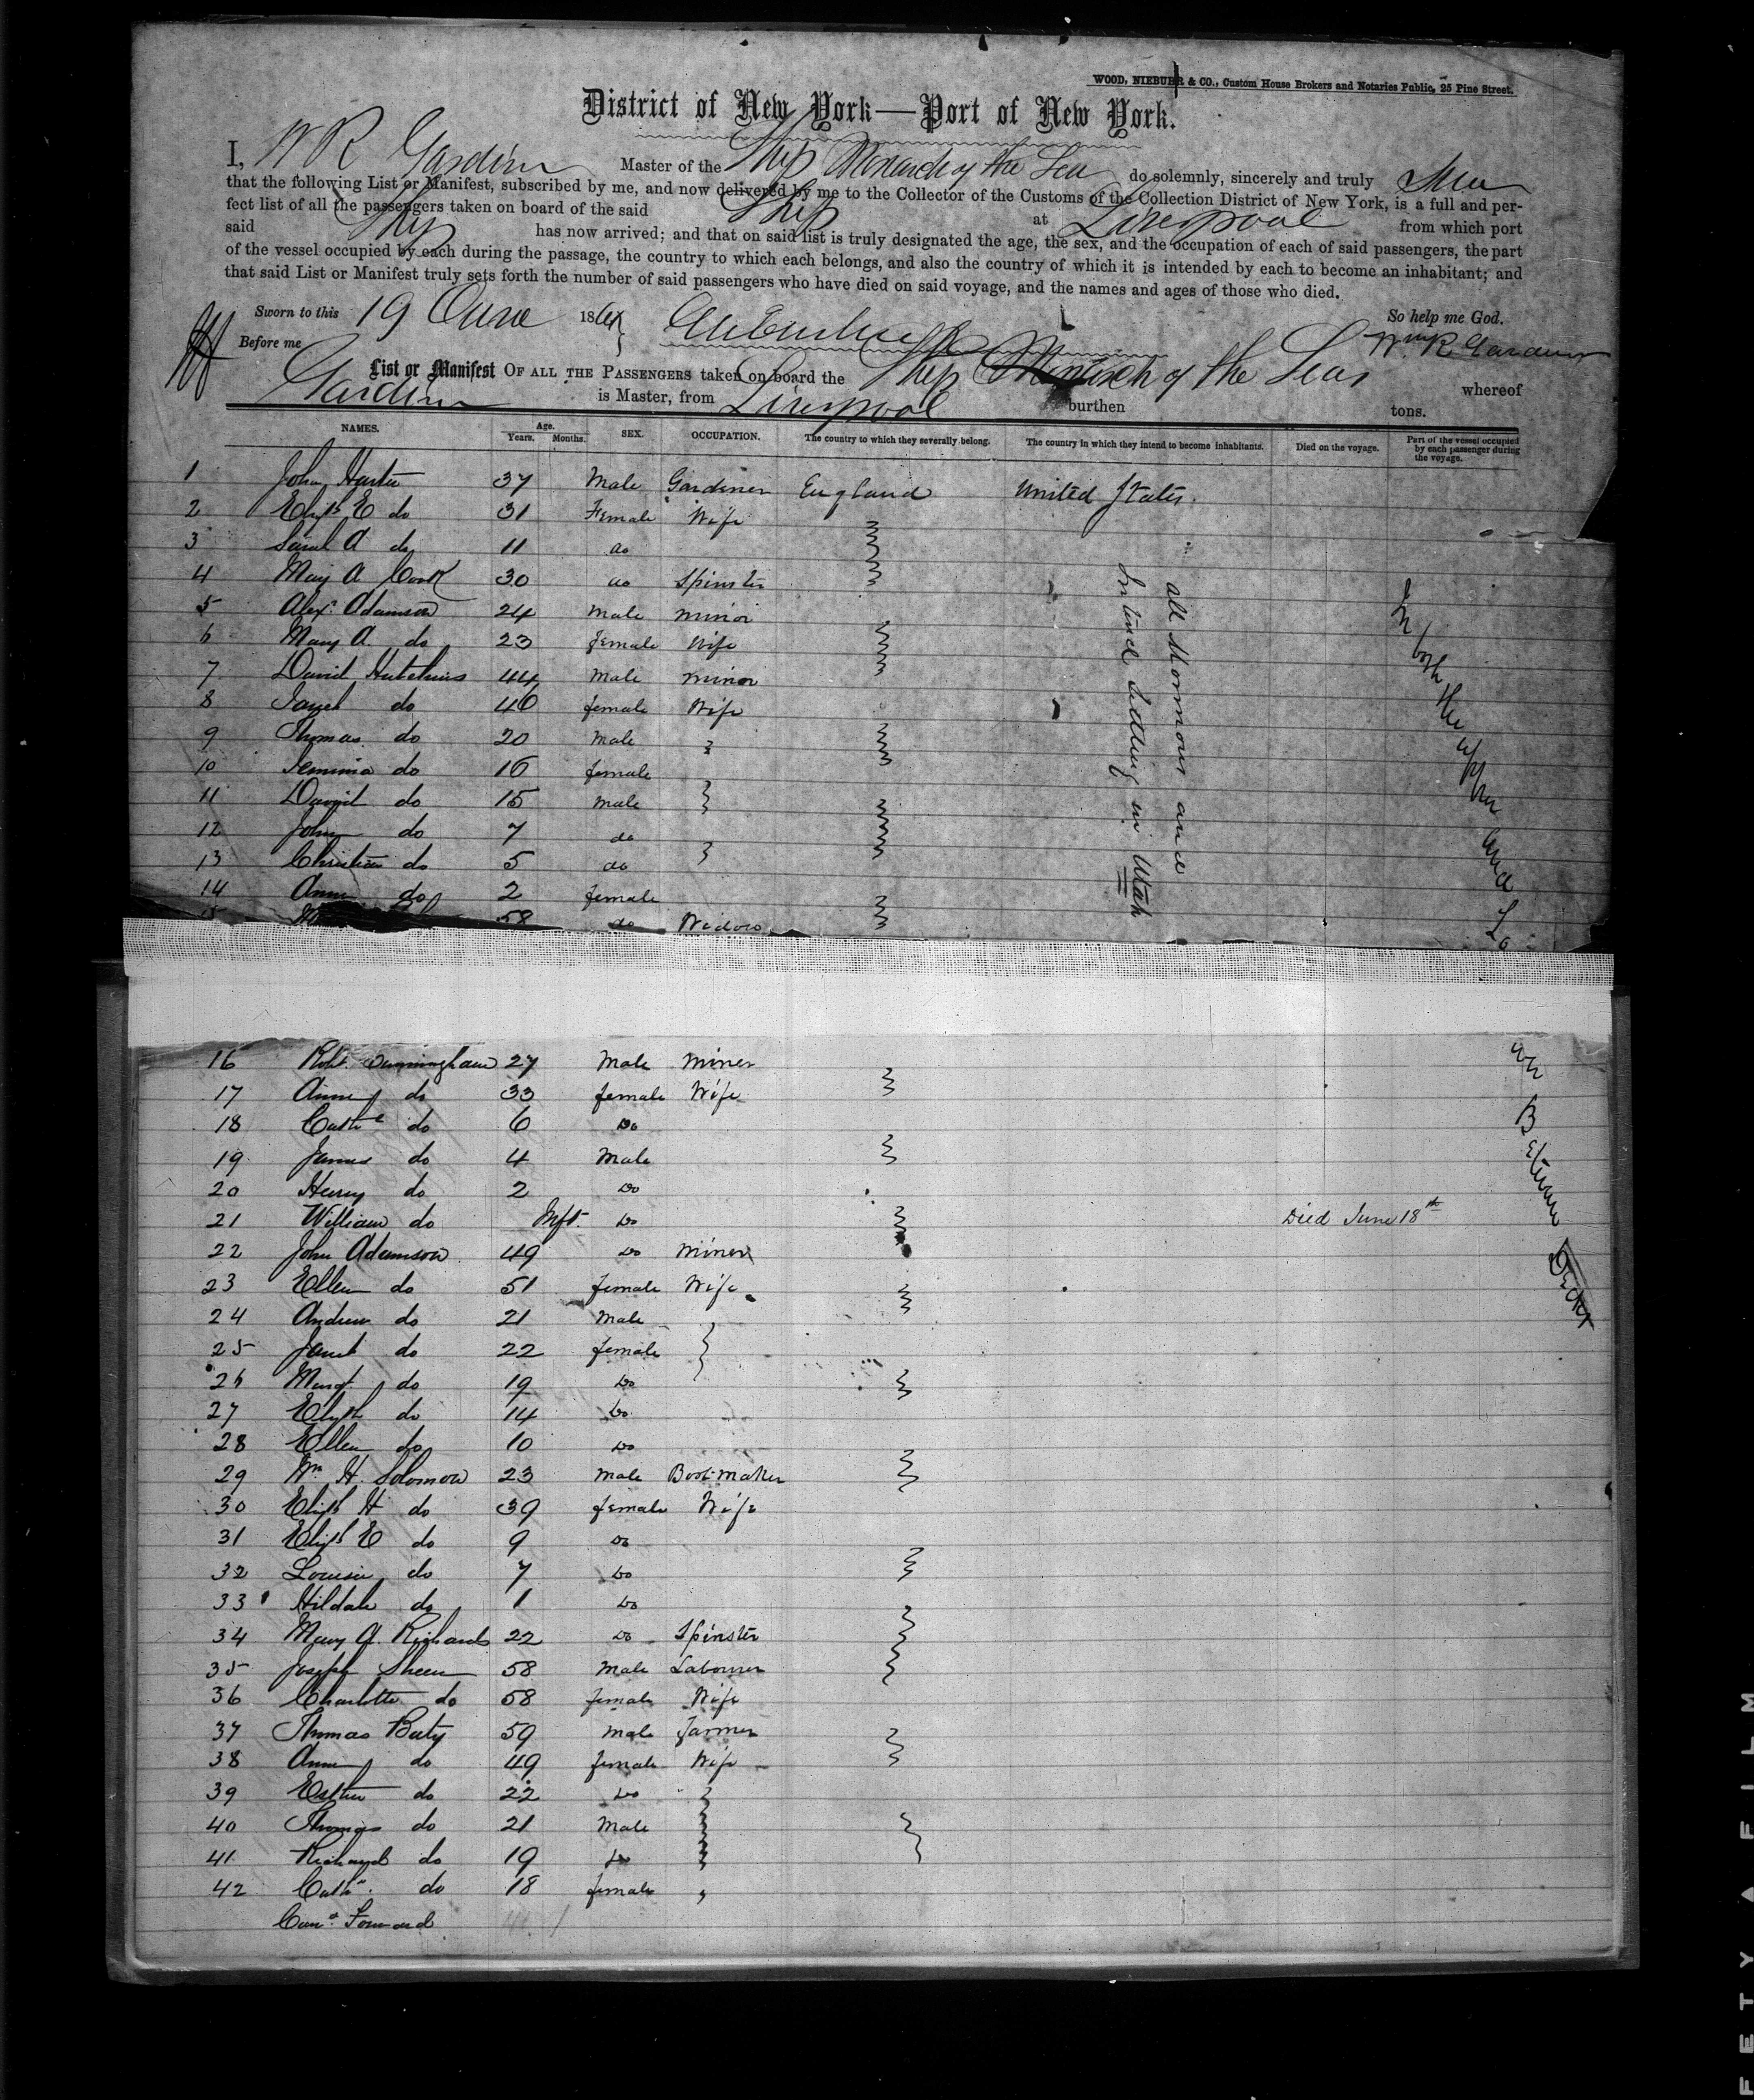 WOOD, NIEBUHR & CO., Custom House Brokers and Notaries Public, 25 Pine Street.
District of New York—Port of New York.
I, W R Gardiner Master of the Ship Monarch of the Sea do solemnly, sincerely and truly
that the following List or Manifest, subscribed by me, and now delivered by me to the Collector of the Customs of the Collection District of New York, is a full and per-
fect list of all the passengers taken on board of the said Ship at Liverpool from which port
said Ship has now arrived; and that on said list is truly designated the age, the sex, and the occupation of each of said passengers, the part
of the vessel occupied by each during the passage, the country to which each belongs, and also the country of which it is intended by each to become an inhabitant; and
that said List or Manifest truly sets forth the number of said passengers who have died on said voyage, and the names and ages of those who died.
Sworn to this 19 June 1861 So help me God.
Before me Wm R Gardiner
List or Manifest OF ALL THE PASSENGERS taken on board the Ship Monarch of the Seas whereof
Gardiner is Master, from Liverpool burthen tons.
NAMES. Age. Years. Months. SEX. OCCUPATION. The country to which they severally belong. The country in which they intend to become inhabitants. Died on the voyage. Part of the vessel occupied by each passenger during the voyage.
1 John 37 Male Gardiner England United States.
2 Elizh E do 31 Female Wife
3 Sarah A do 11 do
4 Mary A Cook 30 do Spinster
5 Alexr Adamson 24 Male minor
6 Mary A. do 23 female Wife
7 David Hutchins 44 Male minor
8 Janet do 46 female Wife
9 Thomas do 20 Male
10 Jemima do 16 female
11 David do 15 Male
12 John do 7 do
13 Christian do 5 do
14 Anne do 2 female
15 58 do Widow
all Mormons and
Intend Settling in Utah
In both the upper and Lower Between Decks
16 Robt. Cunningham 27 Male Miner
17 Anne do 33 female Wife
18 Cathe do 6 Do
19 James do 4 Male
20 Henry do 2 Do
21 William do Inft. Do Died June 18th
22 John Adamson 49 Do Miner
23 Ellen do 51 female Wife
24 Andrew do 21 Male
25 Janet do 22 female
26 Margt. do 19 Do
27 Elizth do 14 Do
28 Ellen do 10 Do
29 Wm H. Solomon 23 Male Bootmaker
30 Elizh H do 39 female Wife
31 Elizh E do 9 Do
32 Louisa do 7 Do
33 Hildah do 1 Do
34 Mary A. Richards 22 Do Spinster
35 Joseph Sheen 58 Male Labourer
36 Charlotte do 58 female Wife
37 Thomas Baty 59 Male farmer
38 Anne do 49 female Wife
39 Esther do 22 Do
40 Thomas do 21 Male
41 Richard do 19 Do
42 Cathn. do 18 female
Card. Forward
FETY ▲ FILM